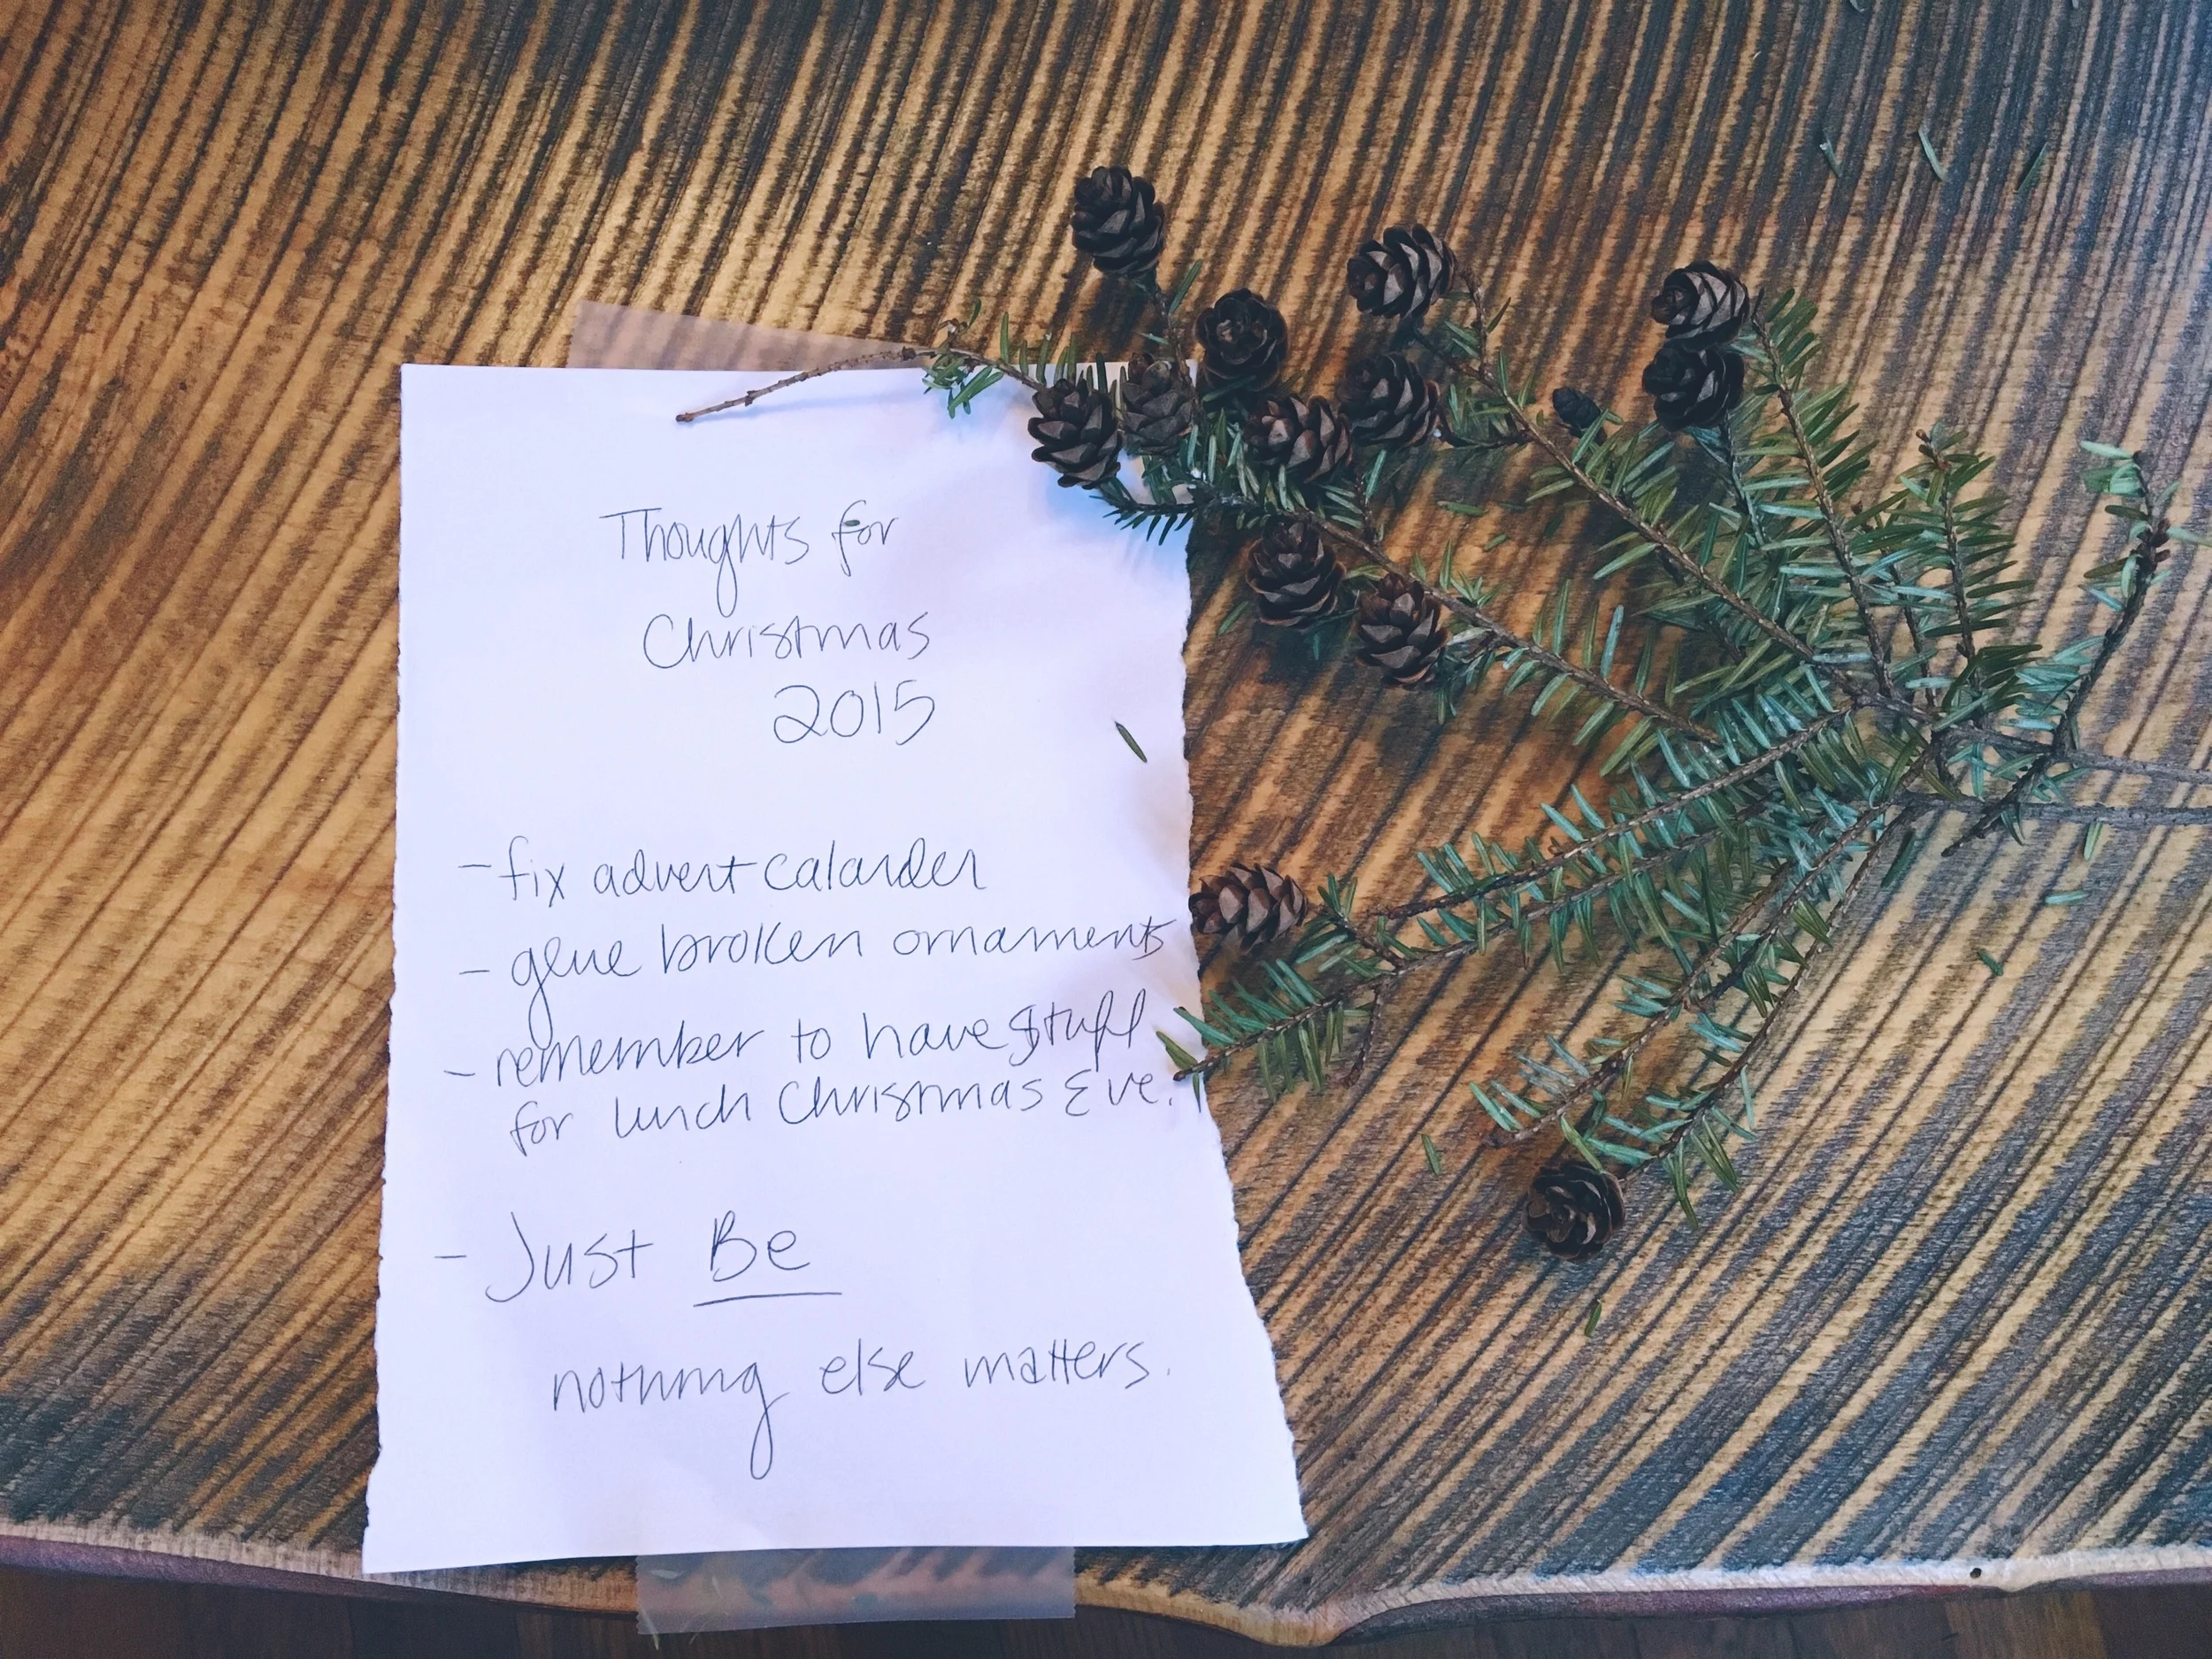 Thoughts for
Christmas
2015
- fix advent calander
- glue broken ornaments
- remember to have stuff
for lunch Christmas Eve.
- Just Be
nothing else matters.